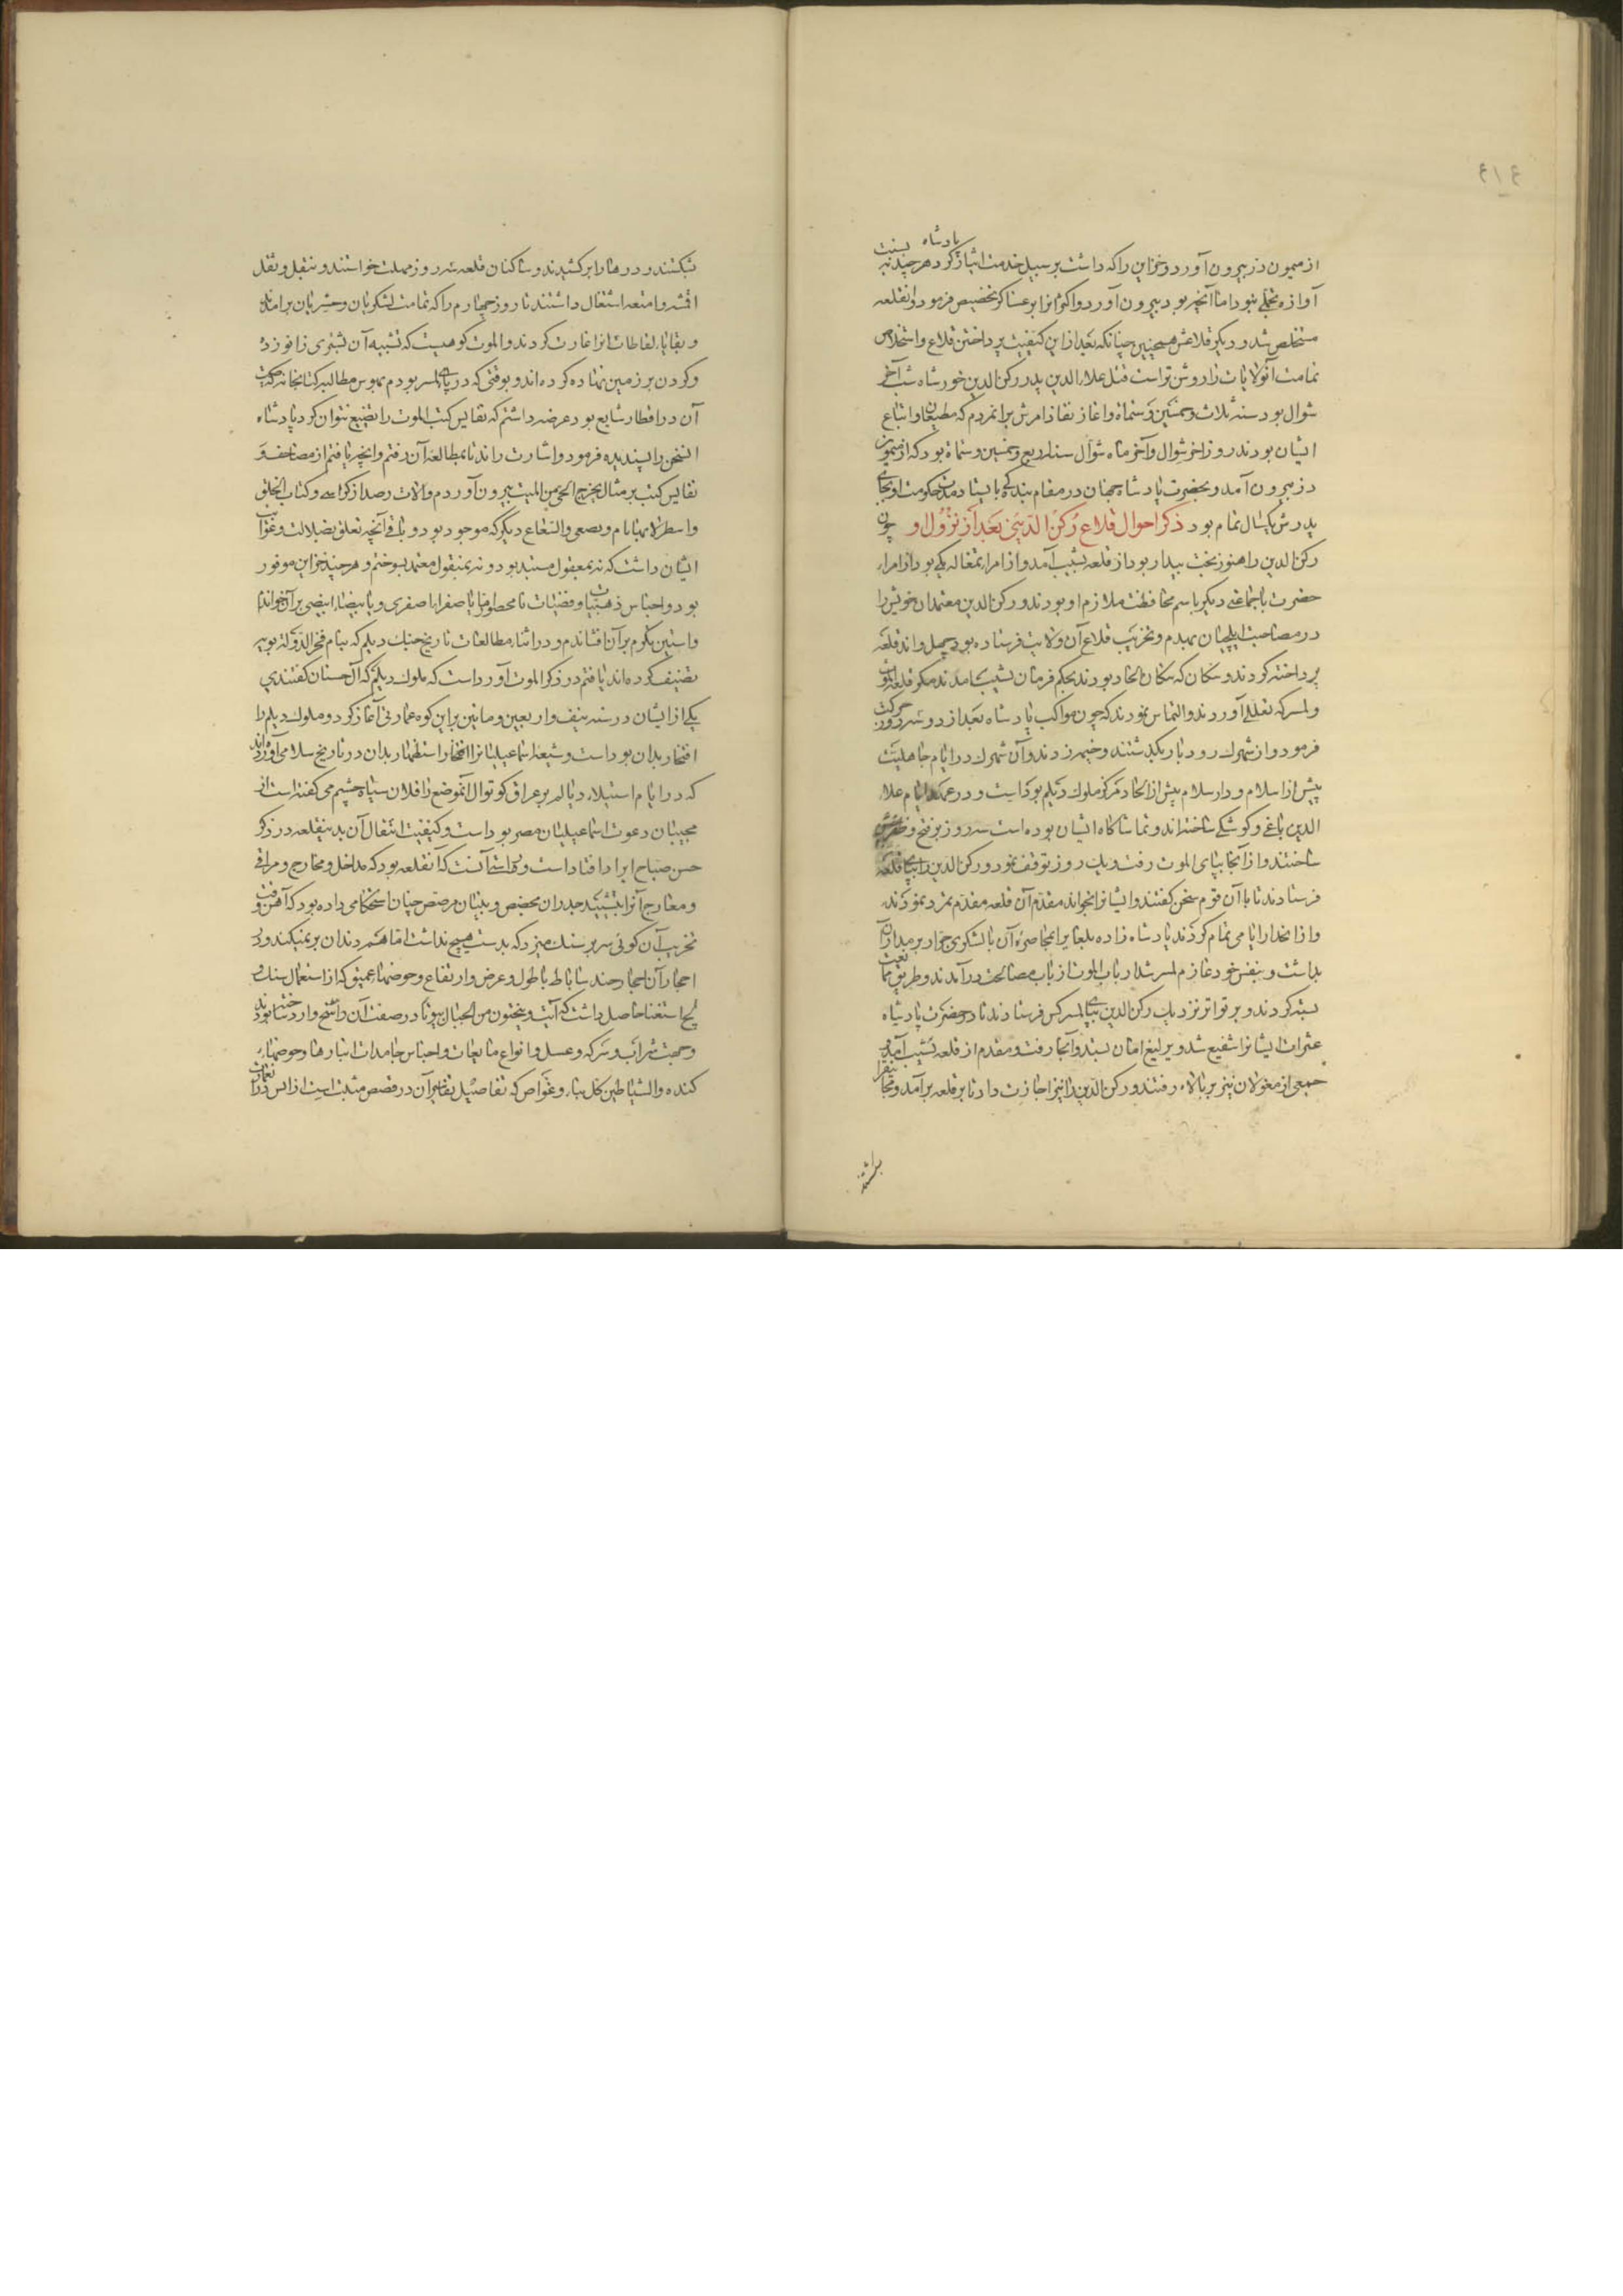 ۶۱۶
پادشاه بنسبت
از میمون دز بیرون آورد و خزاین را که داشت بر سبیل خدمت ایثار کرد هر چند نه
آوازه تجملی نبود اما آنچه بود بیرون آورد و اکثر آنرا بر عساکر تخصیص فرمود و آن قلعه
مستخلص شد و دیگر قلاعش همچنین چنانکه بعد ازین کیفیت پرداختن قلاع و استخلاص
تمامت آن ولایات را روشن تر است قتل علاء الدین پدر رکن الدین خورشاه شب آخر
شوال بود سنه ثلاث و خمسین و ستمأة و اغاز نفاذ امرش بر آن مردم که مطیعان و اتباع
ایشان بودند روز اخر شوال و آخر ماه شوال سنه اربع و خمسین و ستمأة بود که از میمون
دز بیرون آمد و بحضرت پادشاه جهان در مقام بندگی بایستاد مدت حکومت او بجای
پدرش یکسال تمام بود ذکر احوال قلاع رکن الدین بعد از نزول او چون
رکن الدین را هنوز بخت بیدار بود از قلعه بشیب آمد و از امراء تمغا له یکی بود از امراء
حضرت با جماعتی دیگر باسم محافظت ملازم او بودند و رکن الدین معتمدان خویش را
در مصاحبت ایلچیان بهدم و تخریب قلاع آن ولایت فرستاده بود چهل و اند قلعه
پرداخته کردند و سکان که سکان الحاد بودند بحکم فرمان بشیب آمدند مگر قلعه الموت
و لمسر که تعللی آوردند و التماس نمودند که چون مواکب پادشاه بعد از دو سه روز حرکت
فرمود و از شهرک رودبار بگذشتند و خیمه زدند و آن شهرک در ایام جاهلیت
پیش از اسلام و در اسلام پیش از الحاد مرکز ملوک دیلم بوداست و در عهد ایام علاء
الدین باغی و کوشکی ساخته اند و تماشا گاه ایشان بوده است سه روز بر فتح و ظفر جشن
ساختند و از آنجا بپای الموت رفت و یک روز توقف نمود و رکن الدین را بپای قلعه
فرستادند تا با آن قوم سخن گفتند و ایشانرا بخواند مقدم آن قلعه مقدم تمرد نمودند
و از انحدار ابا می تمام کردند پادشاه زاده بلغا برا بمحاصره آن با لشکری جرار بر مدار آن
بداشت و بنفس خود عازم لمسر شد ارباب الموت از باب مصالحت در آمدند و طریق ممانعت
بسته کردند و بر تواتر نزدیک رکن الدین بپای لمسر کس فرستادند تا در حضرت پادشاه
عثرات ایشانرا شفیع شد و یرلیغ امان بستد و آنجا رفت و مقدم از قلعه بشیب آمد و
جمعی از مغولان نیز بر بالاء رفتند و رکن الدین را نیز اجازت داد تا بر قلعه بر آمد و مجانیقرا
بشکستند
بشکستند و درها را برکشیدند و ساکنان قلعه سه روز مهلت خواستند و بنقل و نقل
اقمشه و امتعه اشتغال داشتند تا روز چهارم را که تمامت لشکریان و حشریان بر آمدند
و بقایاء لقاطات انرا غارت کردند و الموت کوهیست که تشبیه آن بشتری زانو زده
و گردن بر زمین نهاده کرده اند و بوقتی که در پای لمسر بودم بهوس مطالعه کتابخانه که صیت
آن در اقطار شایع بود عرضه داشتم که نفایس کتب الموت را تضییع نتوان کرد پادشاه
آن سخن را پسندیده فرمود و اشارت راند تا بمطالعه آن رفتم و آنچه یافتم از مصاحف و
نفایس کتب بر مثال یخرج الحی من المیت بیرون آوردم و آلات رصد از کراسی و کتاب الحلق
و اسطرلابهاء تام و نصفی و الشعاع دیگر که موجود بود و باقی آنچه تعلق بضلالت و غوایت
ایشان داشت که نه بمعقول مستند بود و نه بمنقول معتمد بسوختم و هر چند خزاین موفور
بود و اجناس ذهبیات و فضیات نامحصور اما یا صفراء اصفری و یا بیضاء ابیضی بر آن خواندم
و آستین تکرم بر آن افشاندم و در اثناء مطالعات تاریخ جیل و دیلم که بنام فخر الدوله بویه
تصنیف کرده اند یافتم در ذکر الموت آورد است که ملوک دیلم که آل جستان گفتندی
یکی از ایشان در سنه نیف و اربعین و مایتین برین کوه عمارتی آغاز کرد و ملوک دیلم را
افتخار بدان بوداست و شیعه اسماعیلیانرا استظهار بدان در تاریخ سلامی آورده اند
که در ایام استیلاء دیالم بر عراق کوتوال آن موضع را فلان سیاه چشم می گفته است از
مجیبان دعوت اسماعیلیان مصر بوداست و کیفیت انتقال آن بدین قلعه در ذکر
حسن صباح ایراد افتاد است و براستی آنست که آن قلعه بود که مداخل و مخارج و مراقی
و معارج آنرا بتشیید جدران مجصص و بنیان مرصص چنان استحکامی داده بود که آهن وقت
تخریب آن گوئی سر بر سنگ میزد که بدست هیچ نداشت اما هم دندان بر میکند و در
احجار آن احجار چند ساباط با طول و عرض و ارتفاع و حوضهاء عمیق که از استعمال سنگ و
گچ استغنا حاصل داشت که آیت و ینحتون من الجبال بیوتا در صفت آن راسخ وارد ساخته بودند
و جهت شراب و سرکه و عسل و انواع مایعات و اجناس جامدات انبارها و حوضهاء
کنده و الشیاطین کل بناء و غواص که تفاصیل تفاسیر آن در قصص مثبت است از انس در آن